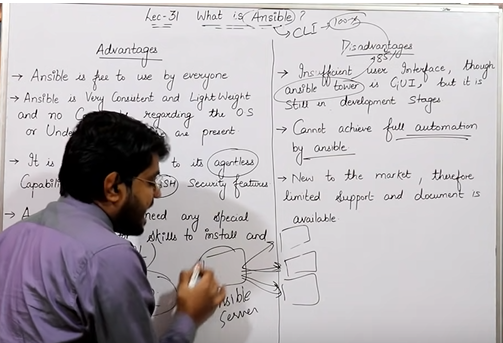 Lec-31 What is Ansible?
→ CLI → 100%
Advantages
→ Ansible is free to use by everyone
→ Ansible is Very Consistent and Light Weight
and no regarding the OS
or Unde are present
→ It is to its agentless
Capabi SSH Security features
→ A need any special
skills to install and
Ansible
Server
Disadvantages
85%
→ Insufficient user Interface, though
ansible tower is GUI, but it is
Still in development stages
→ Cannot achieve full automation
by ansible
→ New to the market, therefore
limited support and document is
available